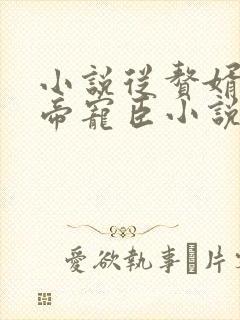 小說從贅婿
帝寵臣小說
愛欲執事 片